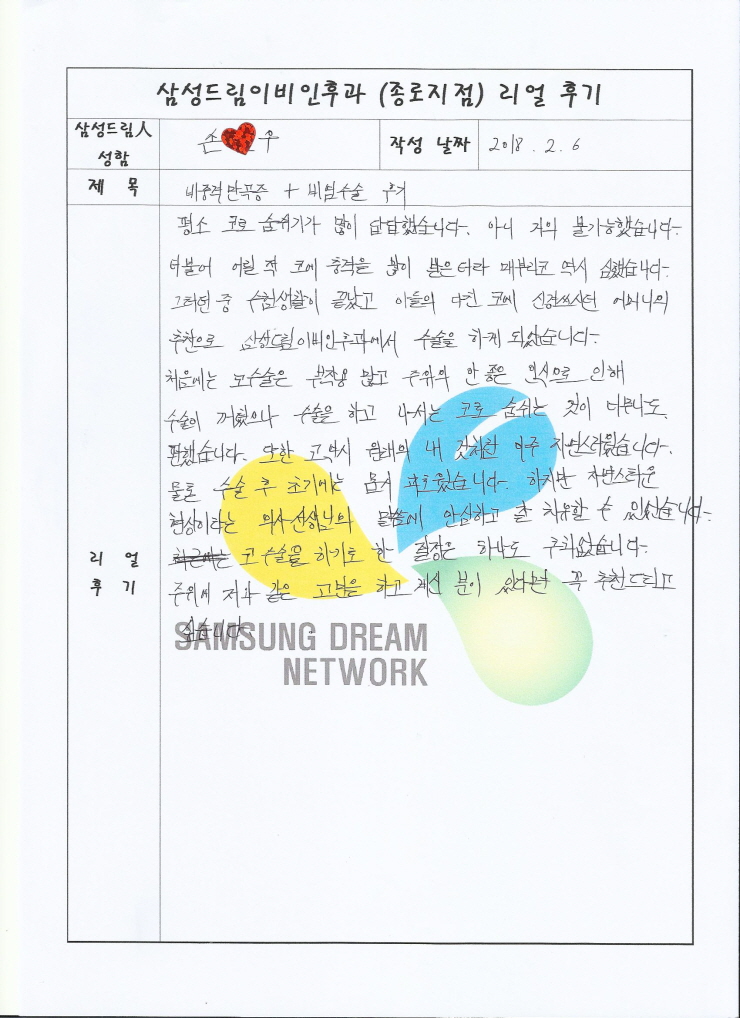 삼성드림이비인후과 (종로지점) 리얼 후기
삼성드림人 성함
손 우
작성 날짜
2018. 2. 6
제 목
비중격만곡증 + 비밸브수술 후기
리 얼 후 기
평소 코로 숨쉬기가 많이 답답했습니다. 아니 거의 불가능했습니다.
더불어 어릴 적 코에 충격을 많이 받은터라 매부리코 역시 심했습니다.
그러던 중 수험생활이 끝났고 아들의 다친 코에 신경쓰시던 어머니의
추천으로 삼성드림이비인후과에서 수술을 하게 되었습니다.
처음에는 코수술은 부작용 많고 주위의 안 좋은 인식으로 인해
수술이 꺼렸으나 수술을 하고 나서는 코로 숨쉬는 것이 너무나도
편했습니다. 또한 코 역시 원래의 내 것처럼 아주 자연스러웠습니다.
물론 수술 후 초기에는 몹시 괴로웠습니다. 하지만 자연스러운
현상이라는 의사선생님의 말씀에 안심하고 잘 치유할 수 있었습니다.
코 수술을 하기로 한 결정은 하나도 후회없습니다.
주위에 저와 같은 고민을 하고 계신 분이 있다면 꼭 추천드리고
싶습니다
SAMSUNG DREAM
NETWORK